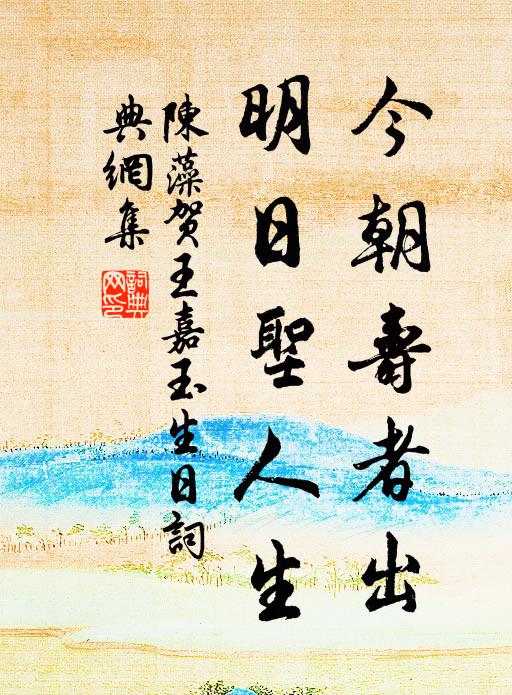 今朝壽者出
明日聖人生
陳藻賀王嘉玉生日詞
典網集
詞典網印